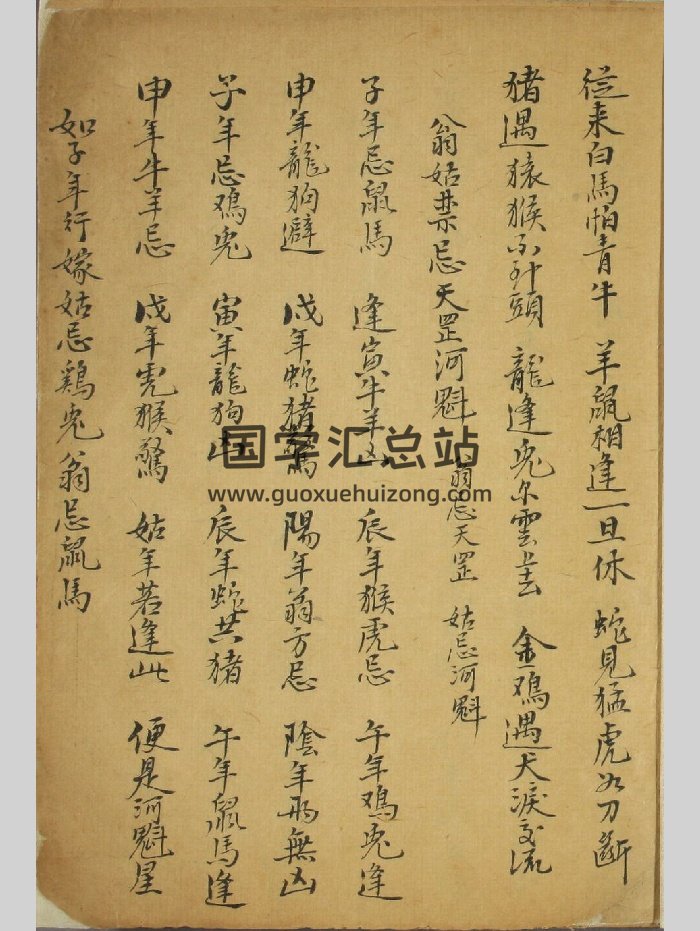 從来白馬怕青牛 羊鼠相逢一旦休 蛇見猛虎如刀斷
猪遇猿猴不到頭 龍逢兎尔雲去 金鷄遇犬淚交流
翁姑禁忌天罡河魁 翁忌天罡 姑忌河魁
子年忌鼠馬 逢寅牛羊凶 辰年猴虎忌 午年鷄兎逢
申年龍狗避 戌年蛇猪驚 陽年翁方忌 陰年而無凶
子年忌鷄兎 寅年龍狗 辰年蛇共猪 午年鼠馬逢
申年牛羊忌 戌年虎猴驚 姑年若逢此 便是河魁星
如子年行嫁姑忌鷄兎翁忌鼠馬
国学汇总站
www.guoxuehuizong.com